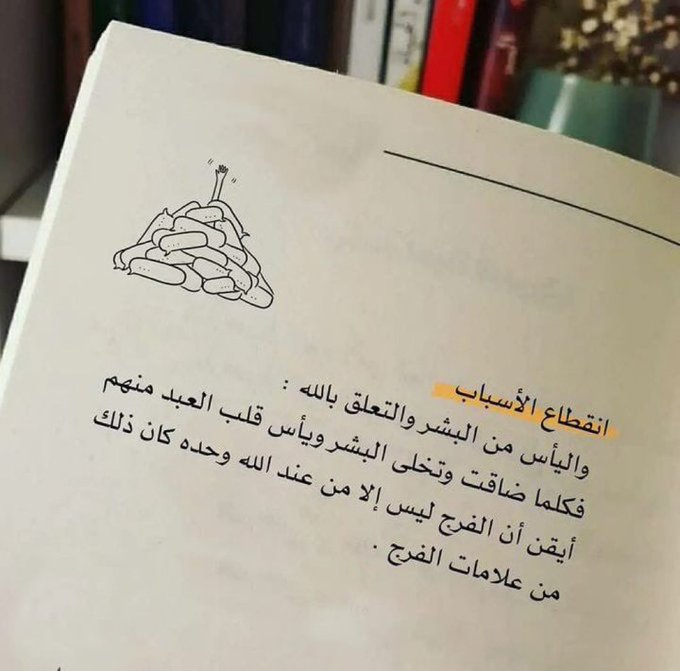 انقطاع الأسباب
واليأس من البشر والتعلق بالله :
فكلما ضاقت وتخلى البشر ويأس قلب العبد منهم
أيقن أن الفرج ليس إلا من عند الله وحده كان ذلك
من علامات الفرج .